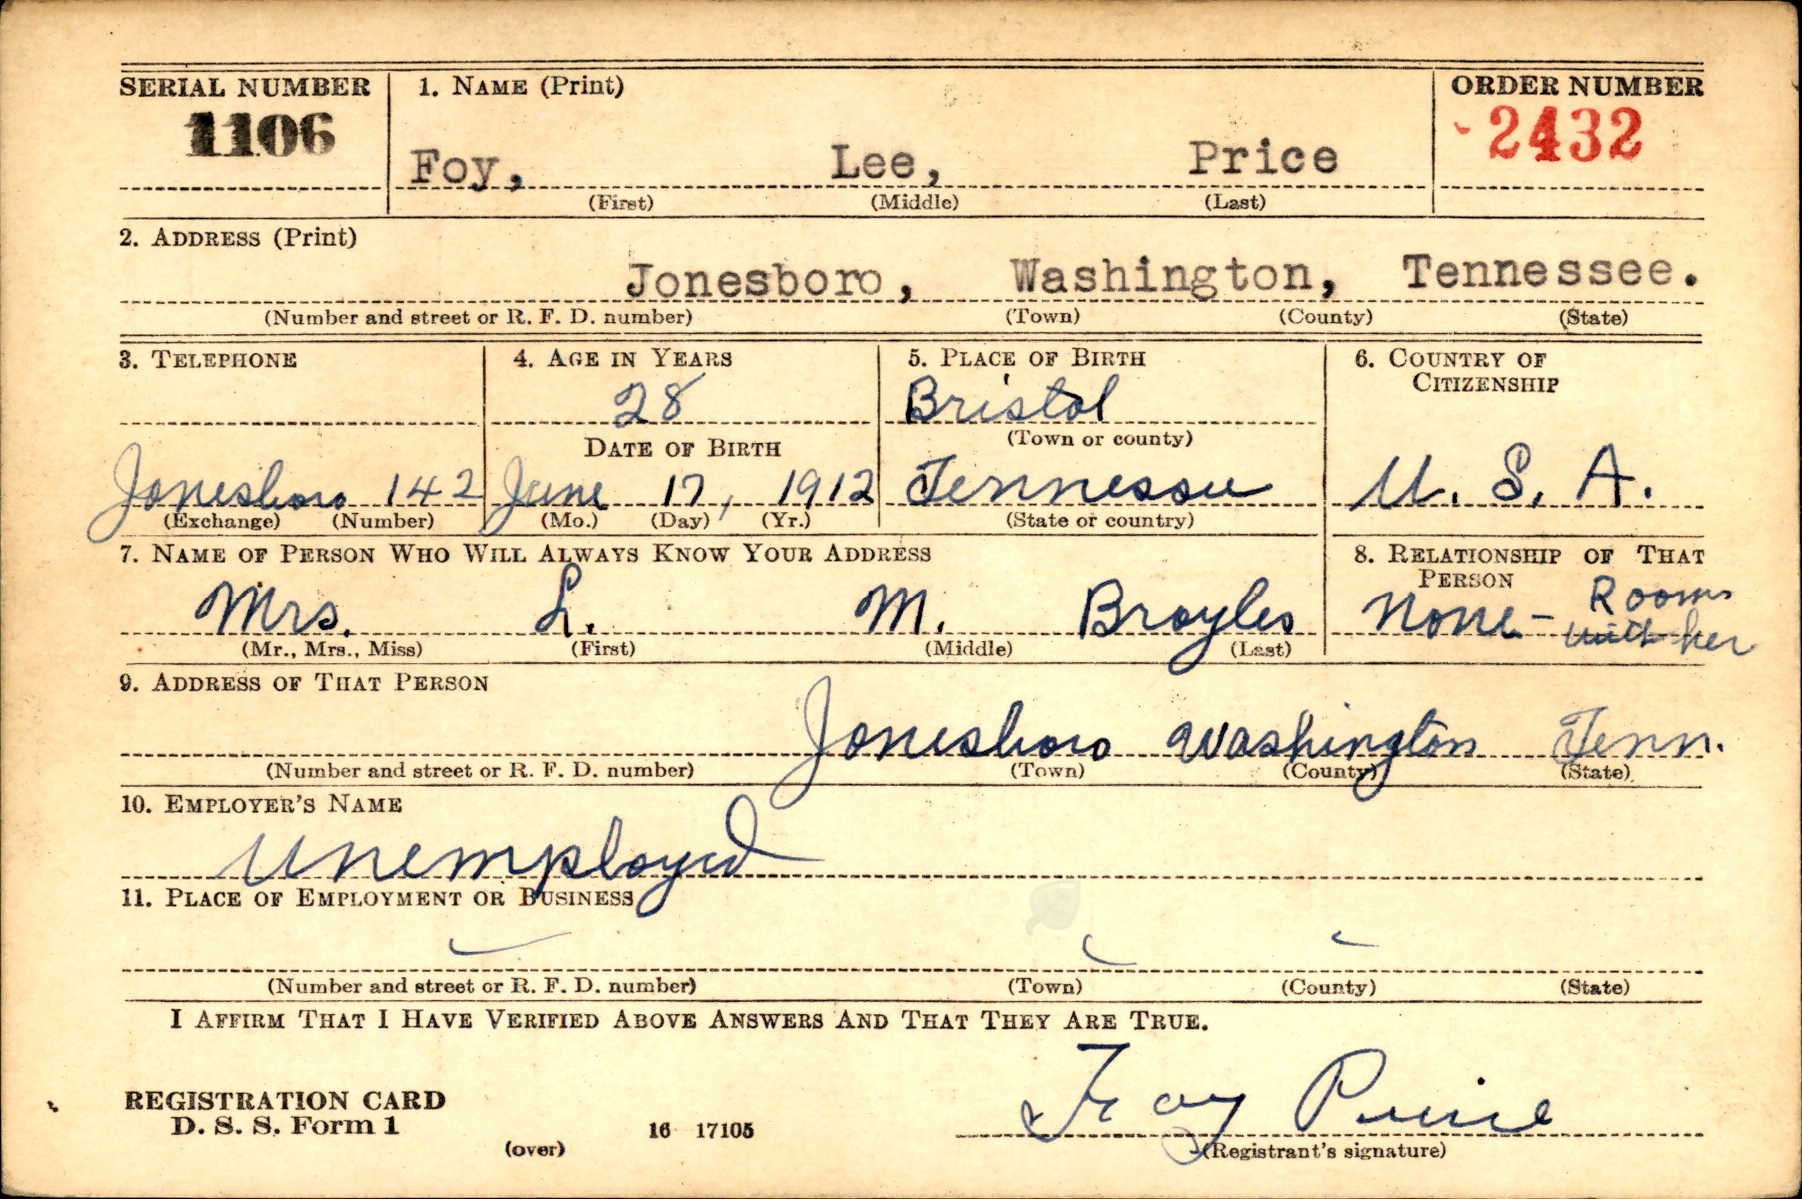 SERIAL NUMBER 1. NAME (Print) ORDER NUMBER
1106 Foy, Lee, Price 2432
(First) (Middle) (Last)
2. ADDRESS (Print)
Jonesboro, Washington, Tennessee.
(Number and street or R. F. D. number) (Town) (County) (State)
3. TELEPHONE 4. AGE IN YEARS 5. PLACE OF BIRTH 6. COUNTRY OF
CITIZENSHIP
28 Bristol
DATE OF BIRTH (Town or county)
Jonesboro 142 June 17, 1912 Tennessee U. S. A.
(Exchange) (Number) (Mo.) (Day) (Yr.) (State or country)
7. NAME OF PERSON WHO WILL ALWAYS KNOW YOUR ADDRESS 8. RELATIONSHIP OF THAT
PERSON
Mrs. L. M. Broyles None - Rooms
with her
(Mr., Mrs., Miss) (First) (Middle) (Last)
9. ADDRESS OF THAT PERSON
Jonesboro Washington Tenn.
(Number and street or R. F. D. number) (Town) (County) (State)
10. EMPLOYER'S NAME
Unemployed
11. PLACE OF EMPLOYMENT OR BUSINESS
(Number and street or R. F. D. number) (Town) (County) (State)
I AFFIRM THAT I HAVE VERIFIED ABOVE ANSWERS AND THAT THEY ARE TRUE.
Foy Price
REGISTRATION CARD
D. S. S. Form 1
(over) 16 17105 (Registrant's signature)